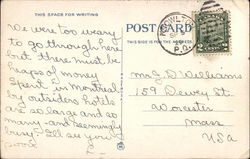 THIS SPACE FOR WRITING
POST CARD
THIS SIDE IS FOR THE ADDRESS
P.Q.
2 2
We were too weary
to go through here
but there must be
heaps of money
spent in Montreal
by outsiders hotels
are so large and so
many and seemingly
busy. I'll see you
soon
Mr J. D. Williams
159 Dewey St.
Worcester
Mass
USA